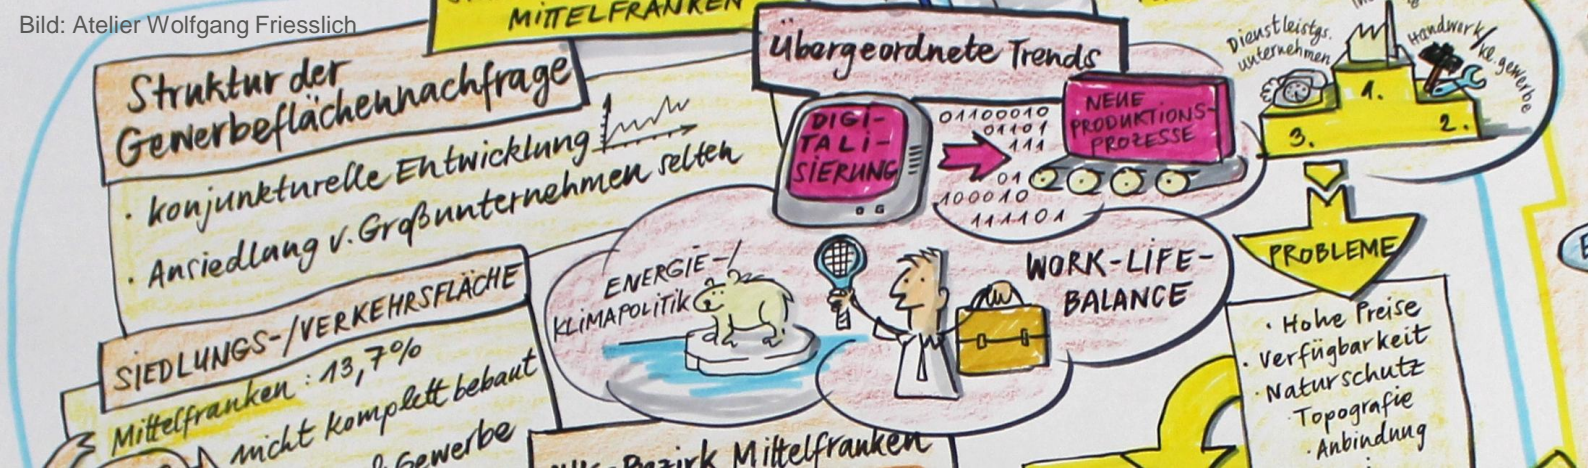 Bild: Atelier Wolfgang Friesslich
MITTELFRANKEN
Struktur der
Gewerbeflächennachfrage
· konjunkturelle Entwicklung
· Ansiedlung v. Großunternehmen selten
SIEDLUNGS-/VERKEHRSFLÄCHE
Mittelfranken : 13,7%
nicht komplett bebaut
Gewerbe
Übergeordnete Trends
DIGI-
TALI-
SIERUNG
01100010
01101
111
01
100010
111101
NEUE
PRODUKTIONS-
PROZESSE
ENERGIE-/
KLIMAPOLITIK
WORK-LIFE-
BALANCE
Mittelfranken
Dienstleistgs.
unternehmen
Handwerk/
kl. gewerbe
1.
2.
3.
PROBLEME
· Hohe Preise
· Verfügbarkeit
· Naturschutz
· Topografie
· Anbindung